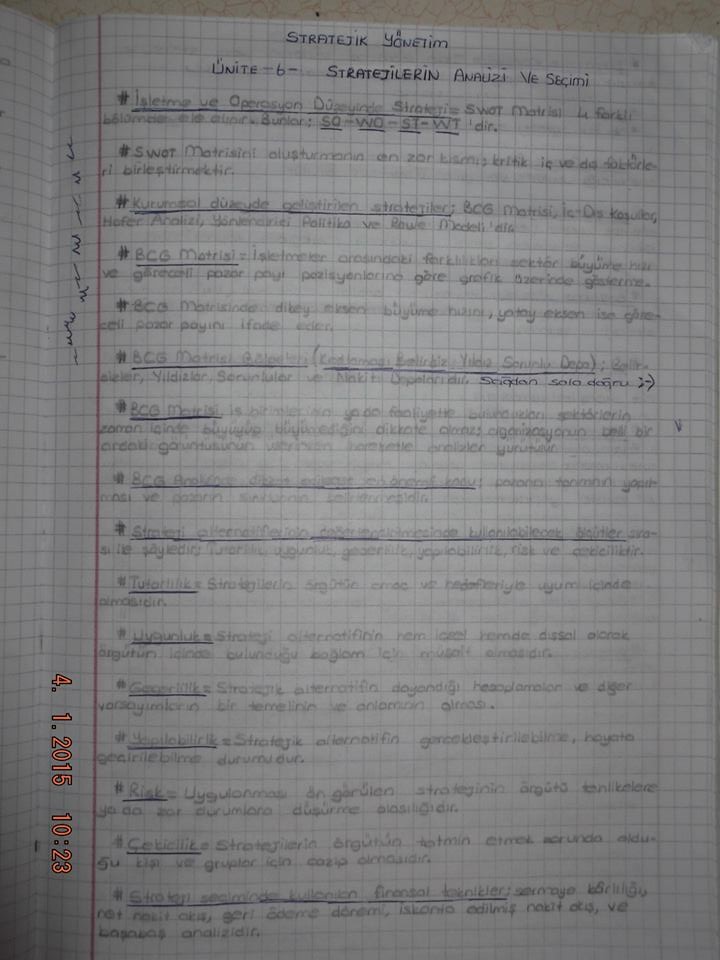 STRATEJİK YÖNETİM
ÜNİTE-6- STRATEJİLERİN ANALİZİ VE SEÇİMİ
# İşletme ve Operasyon Düzeyinde Strateji = SWOT Matrisi 4 farklı
bölümde ele alınır. Bunlar; SO-WO-ST-WT'dir.
# SWOT Matrisini oluşturmanın en zor kısmı; kritik iç ve dış faktörle-
ri birleştirmektir.
# Kurumsal düzeyde geliştirilen stratejiler; BCG Matrisi, İç-Dış Koşullar,
Hofer Analizi, Yönlendirici Politika ve Rowe Modeli'dir.
# BCG Matrisi = İşletmeler arasındaki farklılıkları sektör büyüme hızı
ve göreceli pazar payı pozisyonlarına göre grafik üzerinde gösterme.
# BCG Matrisinde dikey eksen büyüme hızını, yatay eksen ise göre-
celi pazar payını ifade eder.
# BCG Matrisi Bölgeleri ( Yıldız Sorunlu Depo);
Yıldızlar, Sorunlular ve Nakit Depolarıdır. Sağdan sola doğru ;-)
# BCG Matrisi iş birimlerinin ya da faaliyette bulundukları sektörlerin
zaman içinde büyüyüp büyümediğini dikkate almaz, organizasyonun belli bir
andaki görüntüsünün hareketle analizler yürütülür.
# BCG Analizinde dikkat konu; pazarın tanımın yapıl-
ması ve pazarın sınırlarının belirlenmesidir.
# Strateji alternatiflerinin değerlendirilmesinde kullanılabilecek ölçütler sıra-
sı ile şöyledir; Tutarlılık, uygunluk, geçerlilik, yapılabilirlik, risk ve çekiciliktir.
# Tutarlılık = Stratejilerin örgütün amaç ve hedefleriyle uyum içinde
olmasıdır.
# Uygunluk = Strateji alternatifinin hem içsel hemde dışsal olarak
örgütün içinde bulunduğu bağlam için müsait olmasıdır.
# Geçerlilik = Stratejik alternatifin dayandığı hesaplamalar ve diğer
varsayımların bir temelinin ve anlamının olması.
# Yapılabilirlik = Stratejik alternatifin gerçekleştirilebilme, hayata
geçirilebilme durumudur.
# Risk = Uygulanması ön görülen stratejinin örgütü tehlikelere
ya da zor durumlara düşürme olasılığıdır.
# Çekicilik = Stratejilerin örgütün tatmin etmek zorunda oldu-
ğu kişi ve gruplar için cazip olmasıdır.
# Strateji seçiminde kullanılan finansal teknikler; sermaye kârlılığı,
net nakit akış, geri ödeme dönemi, iskonto edilmiş nakit akış, ve
başabaş analizidir.
4. 1. 2015 10:23